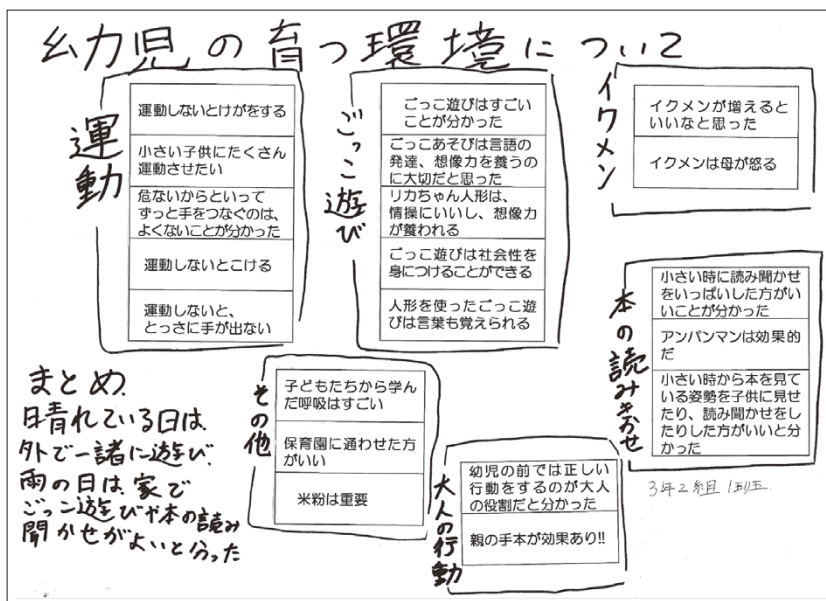 幼児の育つ環境について
運動
運動しないとけがをする
小さい子供にたくさん
運動させたい
危ないからといって
ずっと手をつなぐのは、
よくないことが分かった
運動しないとこける
運動しないと、
とっさに手が出ない
ごっこ遊び
ごっこ遊びはすごい
ことが分かった
ごっこあそびは言語の
発達、想像力を養うの
に大切だと思った
リカちゃん人形は、
情操にいいし、想像力
が養われる
ごっこ遊びは社会性を
身につけることができる
人形を使ったごっこ遊
びは言葉も覚えられる
イクメン
イクメンが増えると
いいなと思った
イクメンは母が怒る
本の読みきかせ
小さい時に読み聞かせ
をいっぱいした方がい
いことが分かった
アンパンマンは効果的
だ
小さい時から本を見て
いる姿勢を子供に見せ
たり、読み聞かせをし
たりした方がいいと分
かった
その他
子どもたちから学ん
だ呼吸はすごい
保育園に通わせた方
がいい
米粉は重要
大人の行動
幼児の前では正しい
行動をするのが大人
の役割だと分かった
親の手本が効果あり!!
3年2組 1班
まとめ
日晴れている日は、
外で一諸に遊び、
雨の日は、家で
ごっこ遊びや本の読み
聞かせがよいと分った